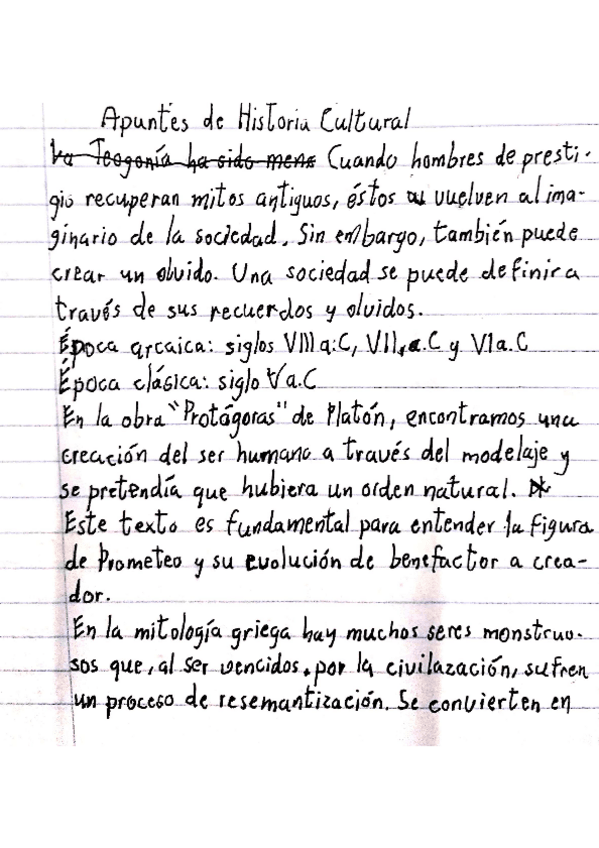 Apuntes de Historia Cultural
La Teogonía ha sido mens Cuando hombres de presti-
gio recuperan mitos antiguos, éstos vuelven al ima-
ginario de la sociedad. Sin embargo, también puede
crear un olvido. Una sociedad se puede definir a
través de sus recuerdos y olvidos.
Época arcaica: siglos VIII a.C, VII a.C y VI a.C
Época clásica: siglo V a.C
En la obra "Protágoras" de Platón, encontramos una
creación del ser humano a través del modelaje y
se pretendía que hubiera un orden natural.
Este texto es fundamental para entender la figura
de Prometeo y su evolución de benefactor a crea-
dor.
En la mitología griega hay muchos seres monstruo-
sos que, al ser vencidos, por la civilazación, sufren
un proceso de resemantización. Se convierten en